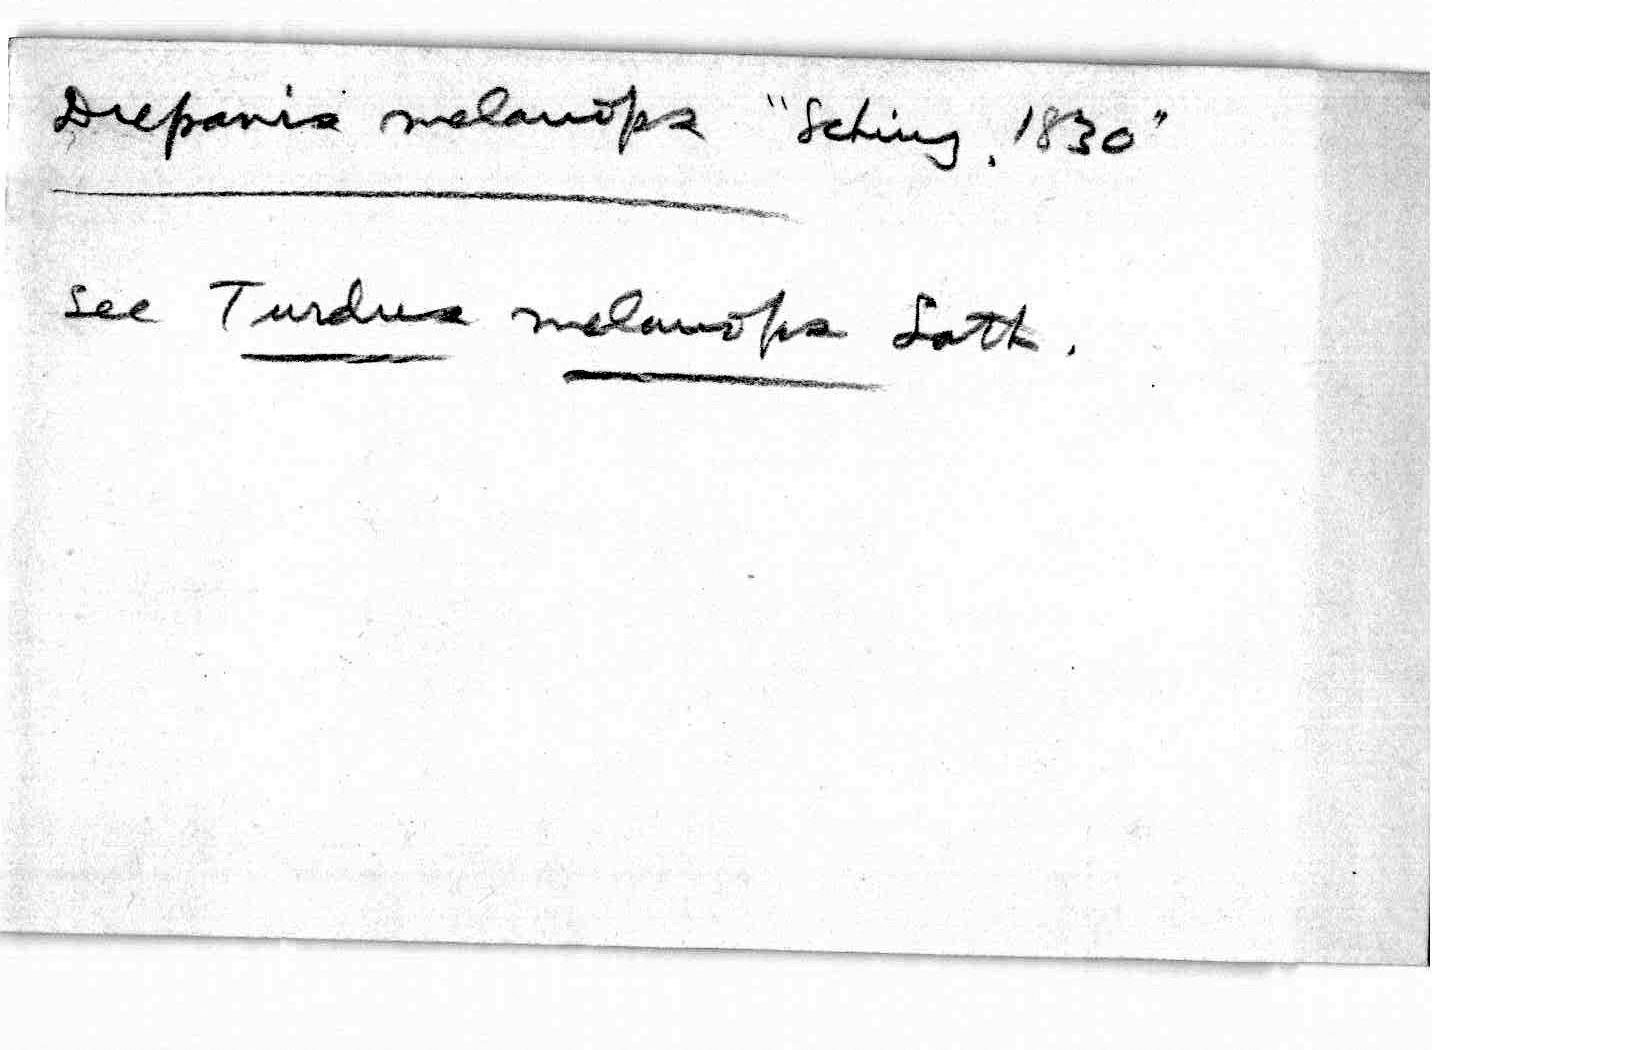 Drepanis melanops "Schinz, 1830"
see Turdus melanops Lath.